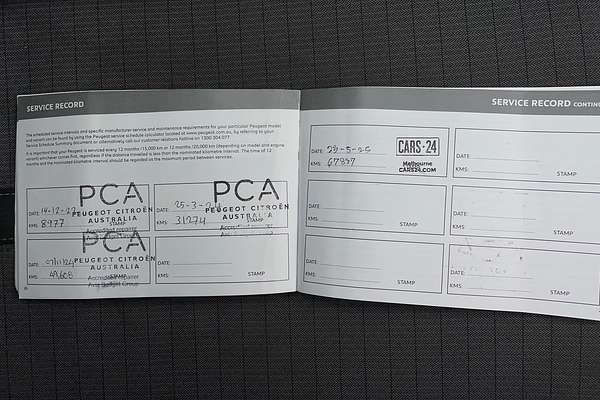 SERVICE RECORD
The scheduled service intervals and specific manufacturer service and maintenance requirements for your particular Peugeot model
and variant can be found by using the Peugeot service calculator located at www.peugeot.com.au, by referring to your
Service Schedule Summary document or alternatively call our customer relations hotline on 1300 304 077.
It is important that your Peugeot is serviced every 12 months /15,000 km or 12 months /20,000 km (depending on model and engine
variant) whichever comes first, regardless if the distance travelled is less than the nominated kilometre interval. The time of 12
months and the nominated kilometre interval should be regarded as the maximum period between services.
PCA
PEUGEOT CITROËN
AUSTRALIA
Accredited repairer
DATE: 14-12-22
KMS: 8977
STAMP
PCA
PEUGEOT CITROËN
AUSTRALIA
DATE: 25-3-24
KMS: 31274
STAMP
PCA
PEUGEOT CITROËN
AUSTRALIA
Accredited repairer
Avis Budget Group
DATE:
KMS: 49,608
STAMP
DATE:
KMS:
STAMP
SERVICE RECORD CONTINU
DATE: 29-5-25
KMS: 67897
CARS·24
Melbourne
CARS24.COM
DATE:
KMS:
STAMP
DATE:
KMS:
STAMP
DATE:
KMS:
STAMP
DATE:
KMS:
STAMP
DATE:
KMS:
STAMP